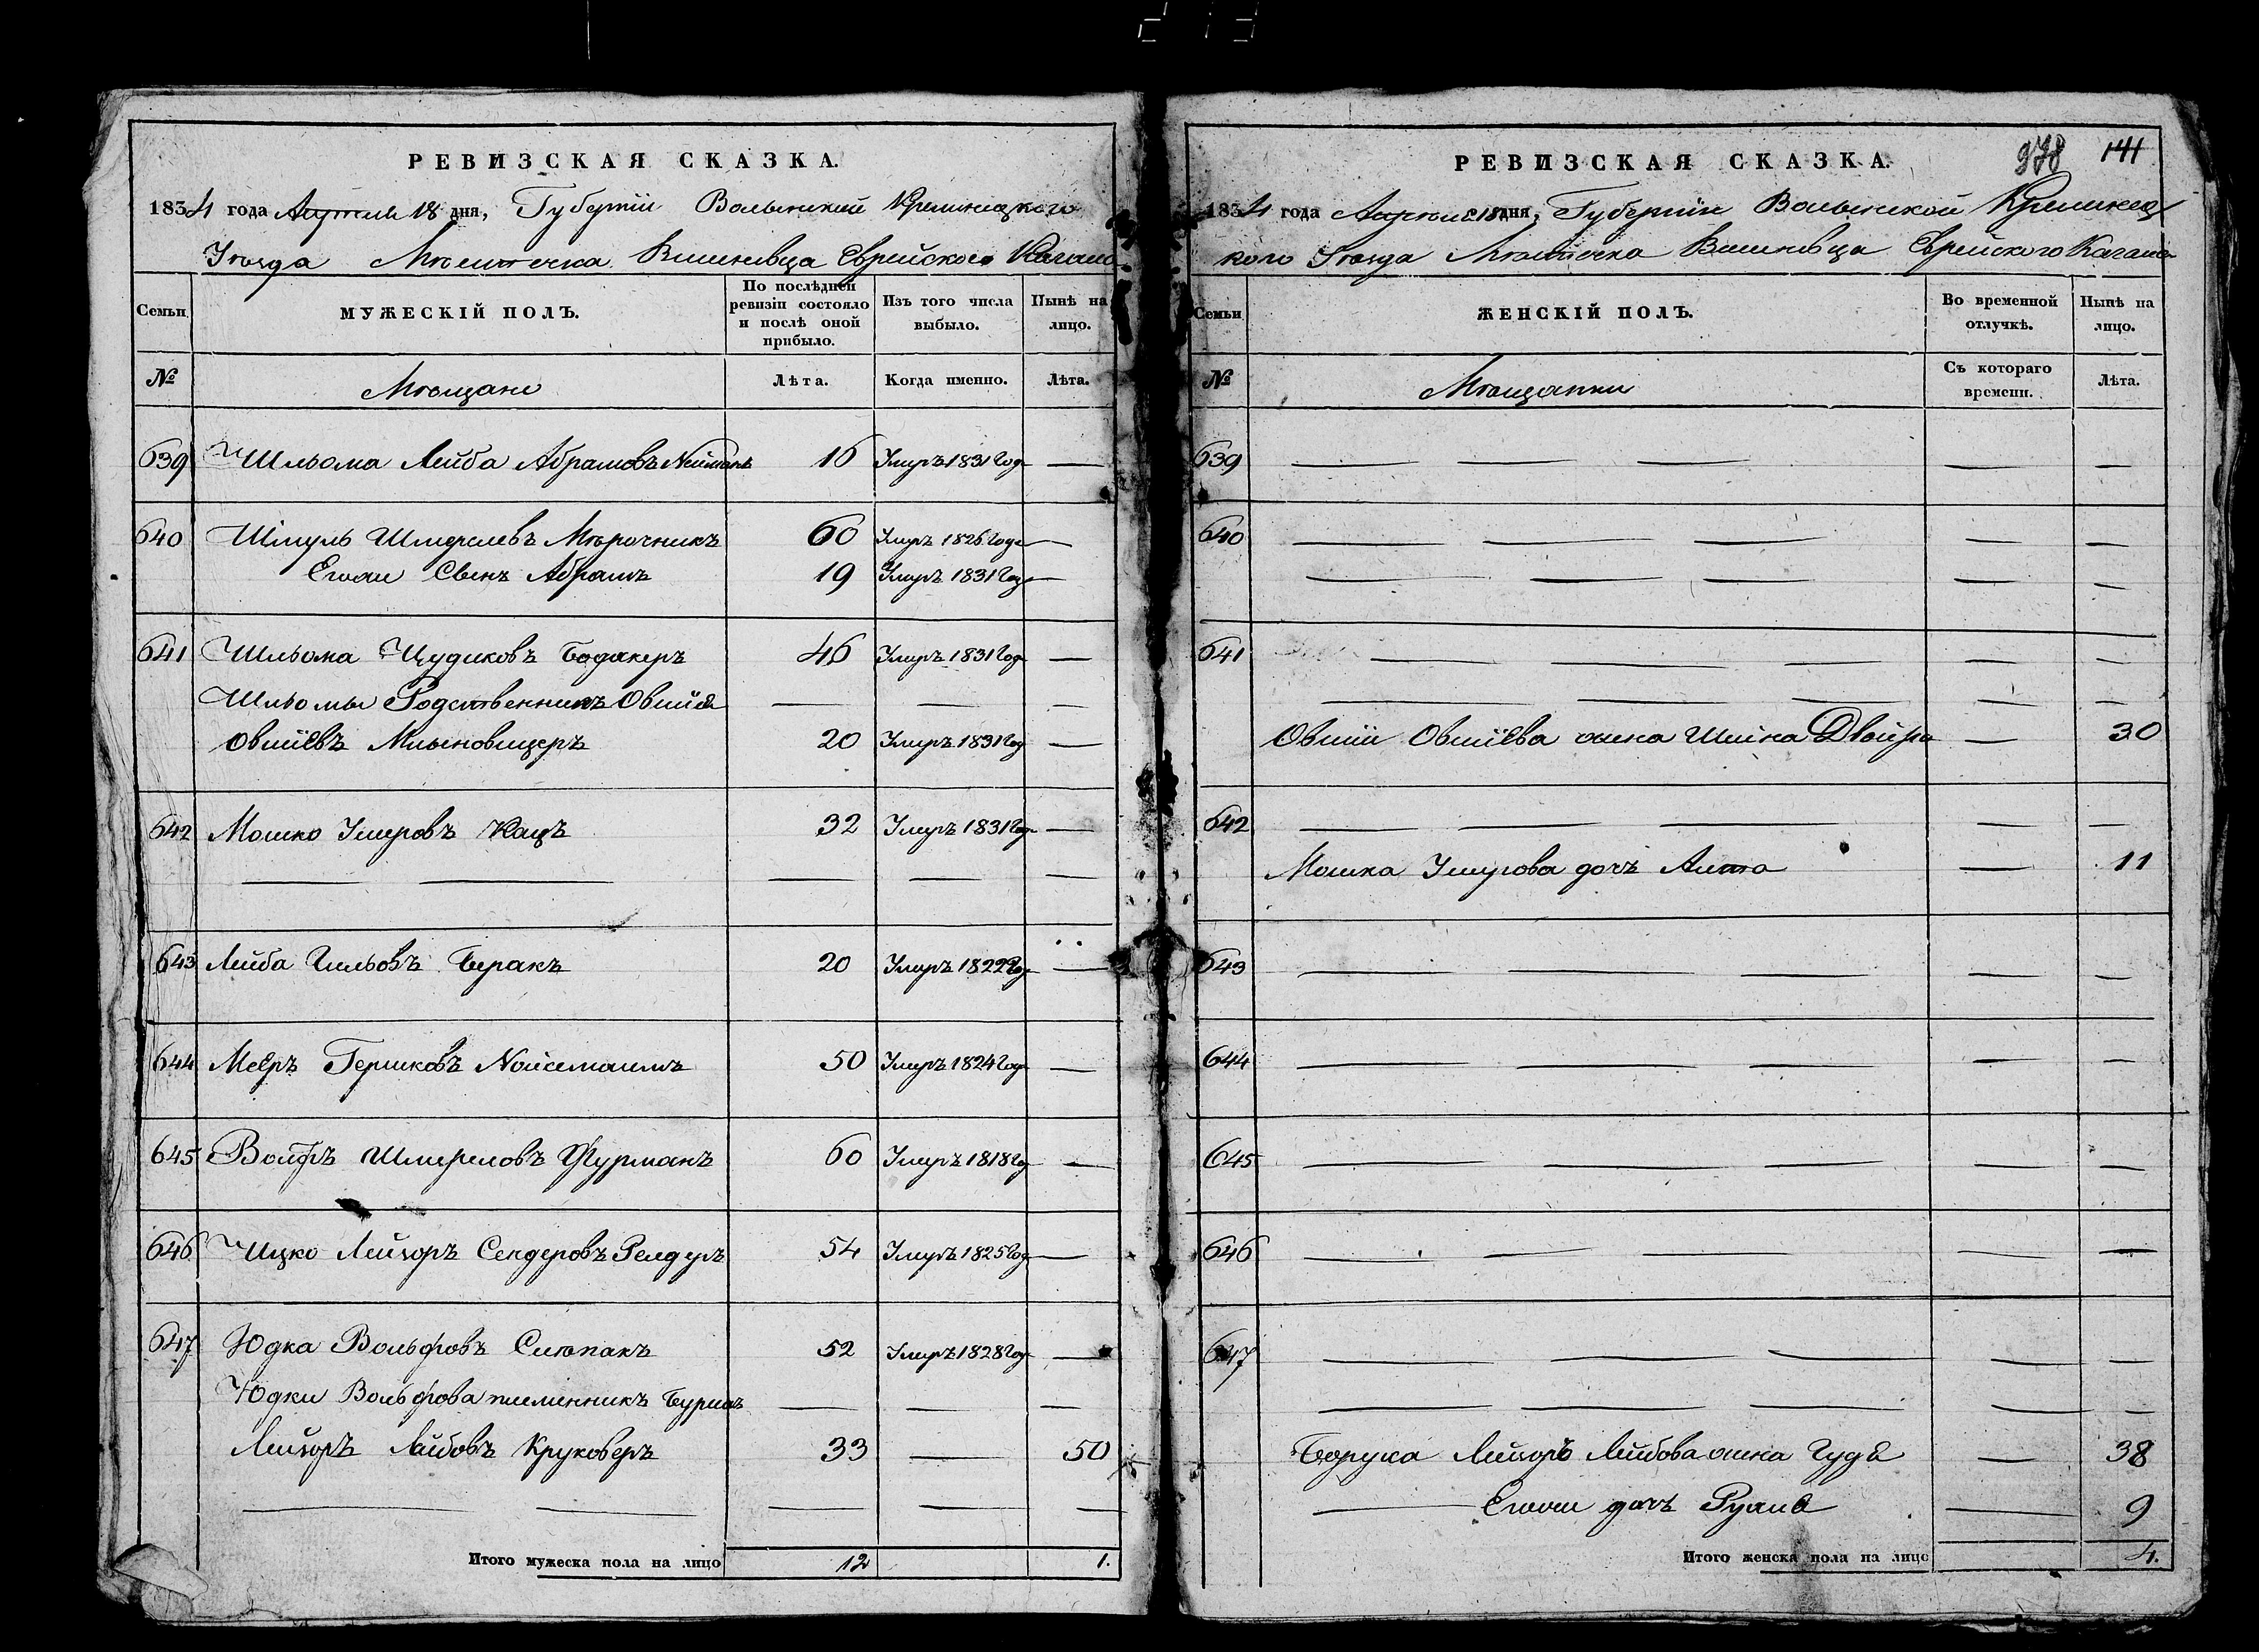 РЕВИЗСКАЯ СКАЗКА.
1834 года Апреля 18 дня, Губерніи Волынской Кременецкого
Уезда Местечка Вишневца Еврейского Кагала
Семьи МУЖЕСКІЙ ПОЛЪ. По послѣдней ревизіи состояло и послѣ оной прибыло. Изъ того числа выбыло. Нынѣ на лицо.
№ Мещане Лѣта. Когда именно. Лѣта.
639 Шльома Лейба Абрамовъ Нейманъ 16 Умръ 1831 Год —
640 Шмуль Шмерлевъ Мерочникъ 60 Умръ 1826 Года —
Сынъ Абрамъ 19 Умръ 1831 Год —
641 Шльома Цудиковъ Бодакеръ 46 Умръ 1831 Год —
Шльомы Родственникъ Овшия — — —
Овшіевъ 20 Умръ 1831 Год —
642 Мошко Умеровъ Кацъ 32 Умръ 1831 Год —
— — — — —
643 Лейба Беракъ 20 Умръ 1822 Год —
644 Мееръ Гершковъ 50 Умръ 1824 Год —
645 Вольфъ Шмерловъ Фурманъ 60 Умръ 1818 Год —
646 Ицко Лейзоръ Сендеровъ 54 Умръ 1825 Год —
647 Юдка Вольфовъ Слюпакъ 52 Умръ 1828 Год —
Юдки Вольфова племенникъ Бурихъ — — —
Лейзоръ Лейбовъ Круковеръ 33 — 50
— — — — —
Итого мужеска пола на лицо 12 1.
978 141
РЕВИЗСКАЯ СКАЗКА.
1834 года Апреля 18 дня, Губерніи Волынской Кременец
кого Уезда Местечка Вишневца Еврейского Кагала
Семьи ЖЕНСКІЙ ПОЛЪ. Во временной отлучкѣ. Нынѣ на лицо.
№ Мещанки Съ котораго времени. Лѣта.
639 — — — — —
640 — — — — —
— — — — —
641 — — — — —
— — — —
Овшіи Овшіева жена Шейна Двойра — 30
642 — — — — —
Мошка Умерова дочъ Алта — 11
643 — — — — —
644 — — — — —
645 — — — — —
646 — — — — —
647 — — — — —
— — — — —
Боруха Лейзоръ Лейбова жена Гудя — 38
— дочъ — 9
Итого женска пола на лицо 4.